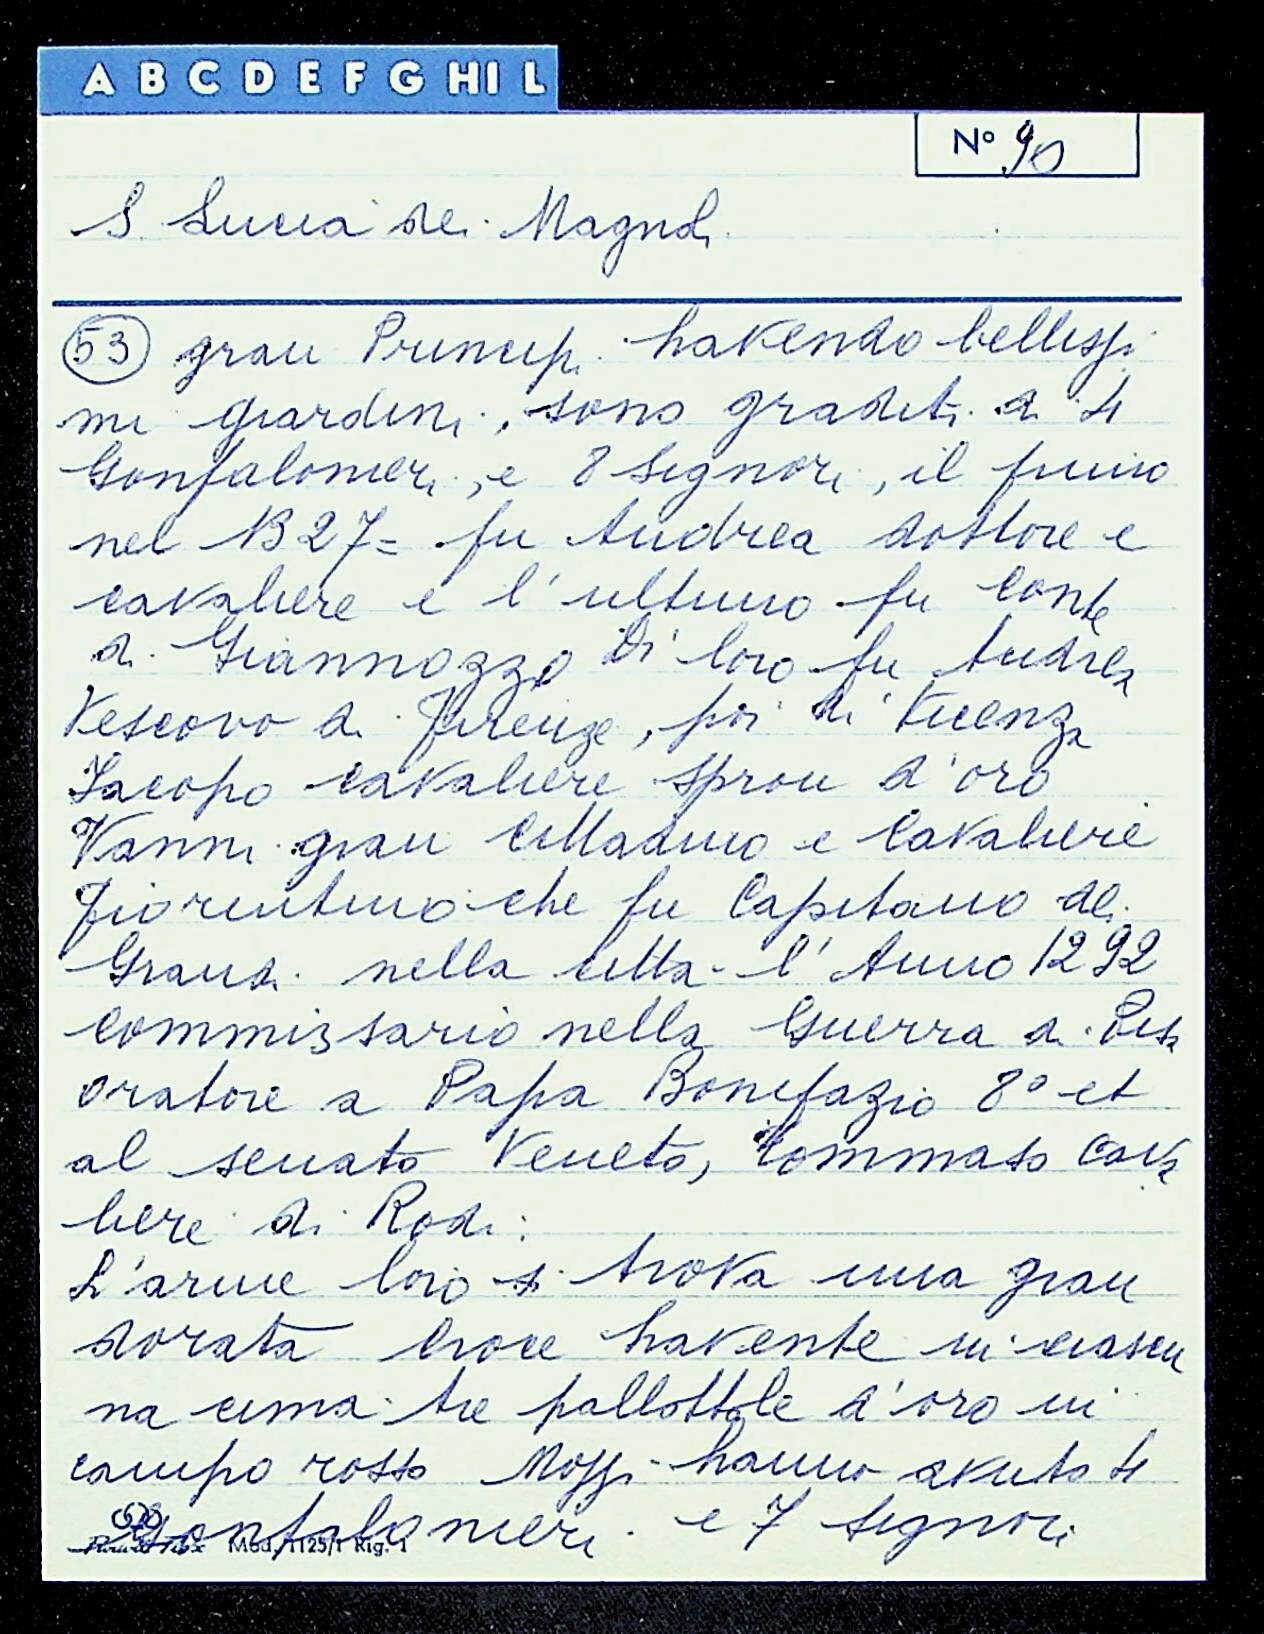 A B C D E F G HI L
Nº 90
S. Lucia dei Magnoli
53 gran Principi havendo bellissi
mi giardini, sono graditi di 4
Gonfalonieri, e 8 Signori, il primo
nel 1327= fu Andrea dottore e
cavaliere e l'ultimo fu Conte
di Giannozzo Di loro fu Andrea
Vescovo di Firenze, poi di Vicenza
Iacopo cavaliere spron d'oro
Vanni gran Cittadino e Cavaliere
fiorentino che fu Capitano dei
Grandi nella città l'Anno 1292
Commissario nella Guerra di Pisa
oratore a Papa Bonifazio 8º et
al senato Veneto, Tommaso Cava
liere di Rodi:
L'arme loro si trova una gran
dorata Croce havente in ciascu
na cima tre pallottole d'oro in
campo rosso Mozzi hanno avuto 4
Gonfalonieri e 7 Signori
Mod. 1125/1 Rig. 1